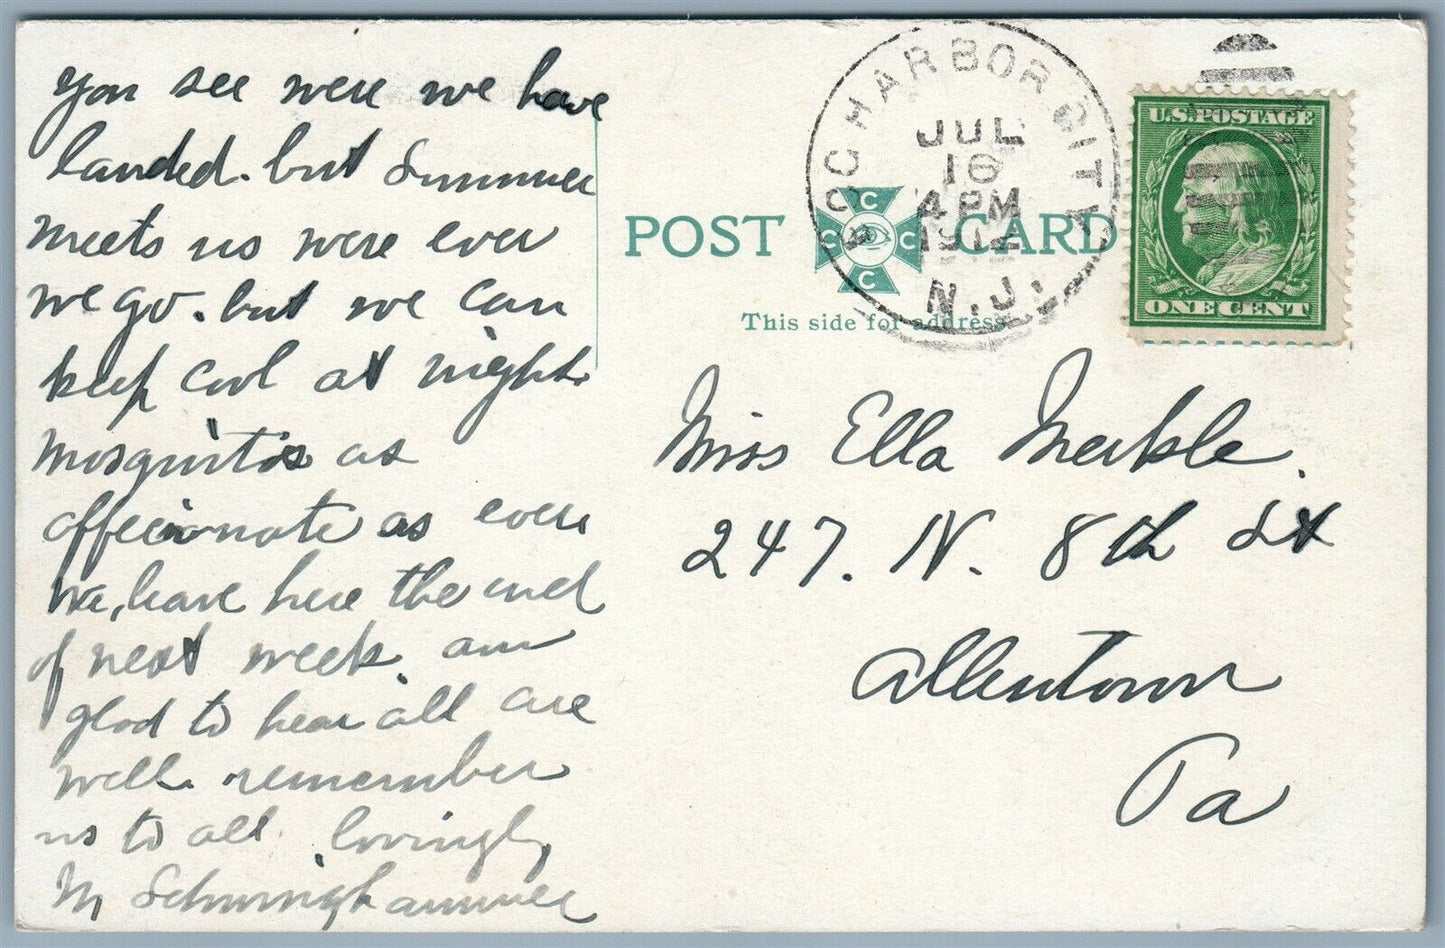 you see were we have
landed. but Summer
meets us were ever
we go. but we can
keep cool at night.
mosquitos as
affecionate as ever
We, leave here the end
of next week. am
glad to hear all are
well. remember
us to all. lovingly
M Schwinghammer
POST CARD
This side for address
C C C C
EGG HARBOR CITY
JUL
16
4 PM
N.J.
U.S. POSTAGE
ONE CENT
Miss Ella Merkle.
247. N. 8th St
Allentown
Pa